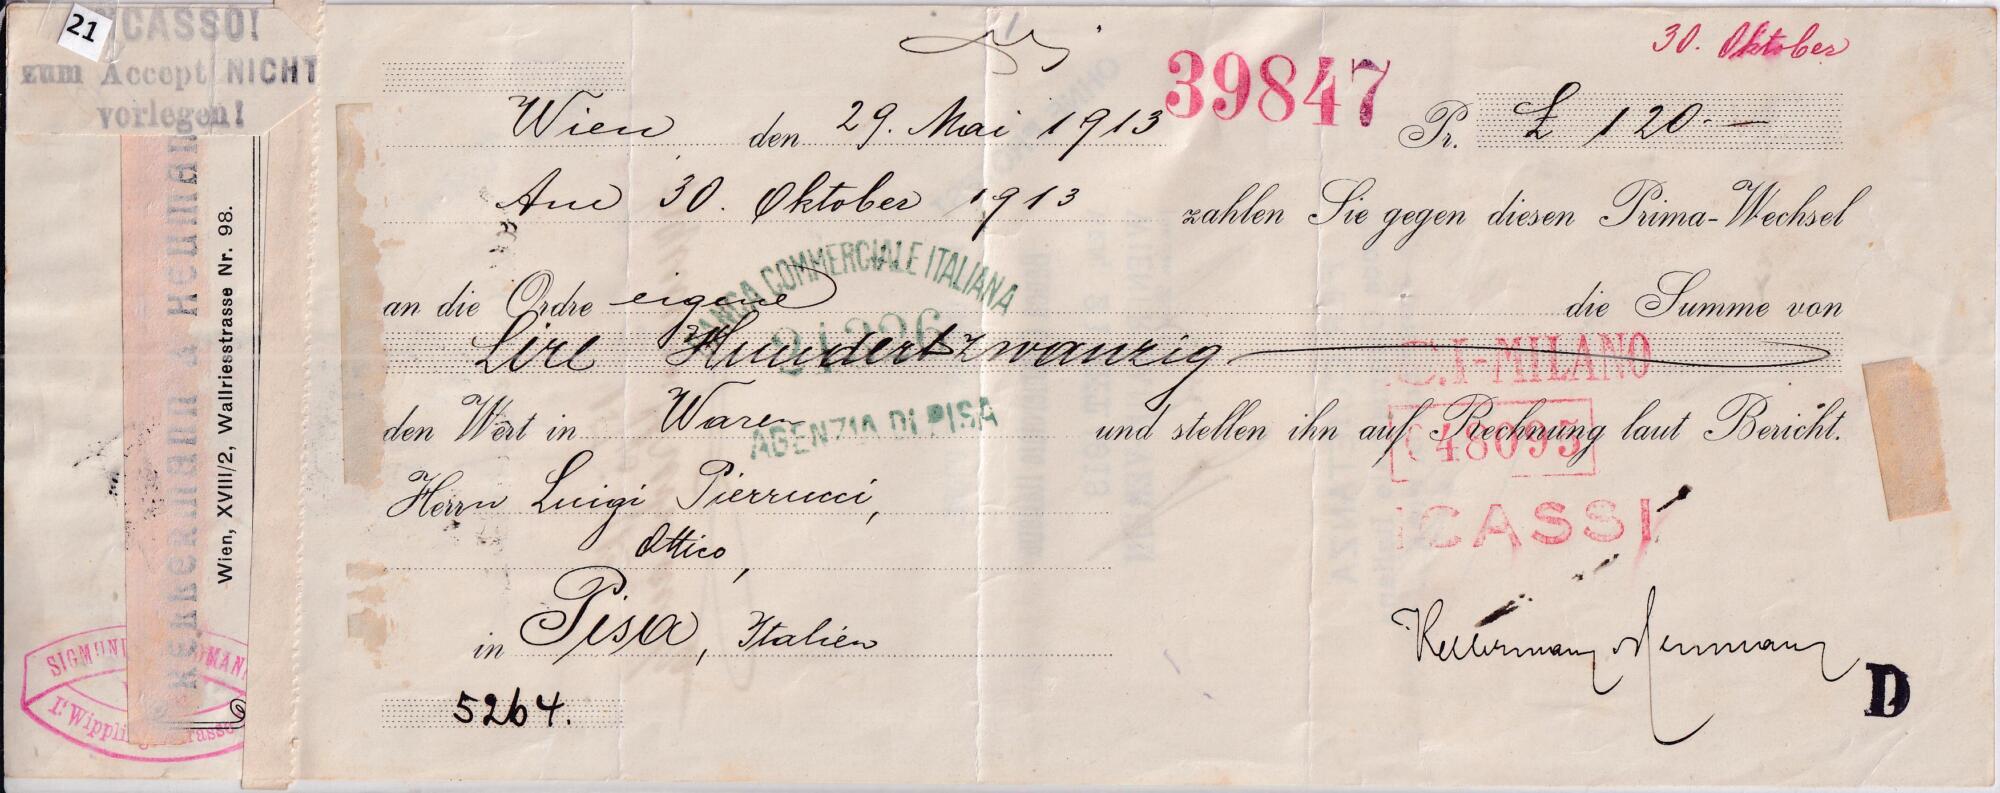 21
CASSO!
zum Accept NICHT
vorlegen!
30. Oktober
39847
Wien den 29. Mai 1913 Pr. £ 120.—
Am 30. Oktober 1913 zahlen Sie gegen diesen Prima-Wechsel
an die Ordre eigene die Summe von
Lire Hundertzwanzig
den Wert in Waren und stellen ihn auf Rechnung laut Bericht.
Herrn Luigi Pierrucci,
Ottico,
in Pisa, Italien
5264.
BANCA COMMERCIALE ITALIANA
AGENZIA DI PISA
C.I-MILANO
48095
ICASSI
D
Wien, XVIII/2, Wallriesstrasse Nr. 98.
SIGMUN